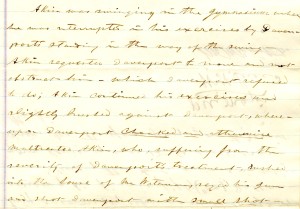 Akin was swinging in the Gymnasium when
he was interrupted in his exercises by Daven-
port standing in the way of the swing
Akin requested Davenport to move and not
obstruct him - which Davenport refused
to do, Akin continued his exercises and
slightly brushed against Davenport, where-
upon Davenport choked and otherwise
maltreated Akin, who suffering from the
severity of Davenport's treatment, rushed
into the house of Mr. seized his gun
and shot Davenport with small shot -